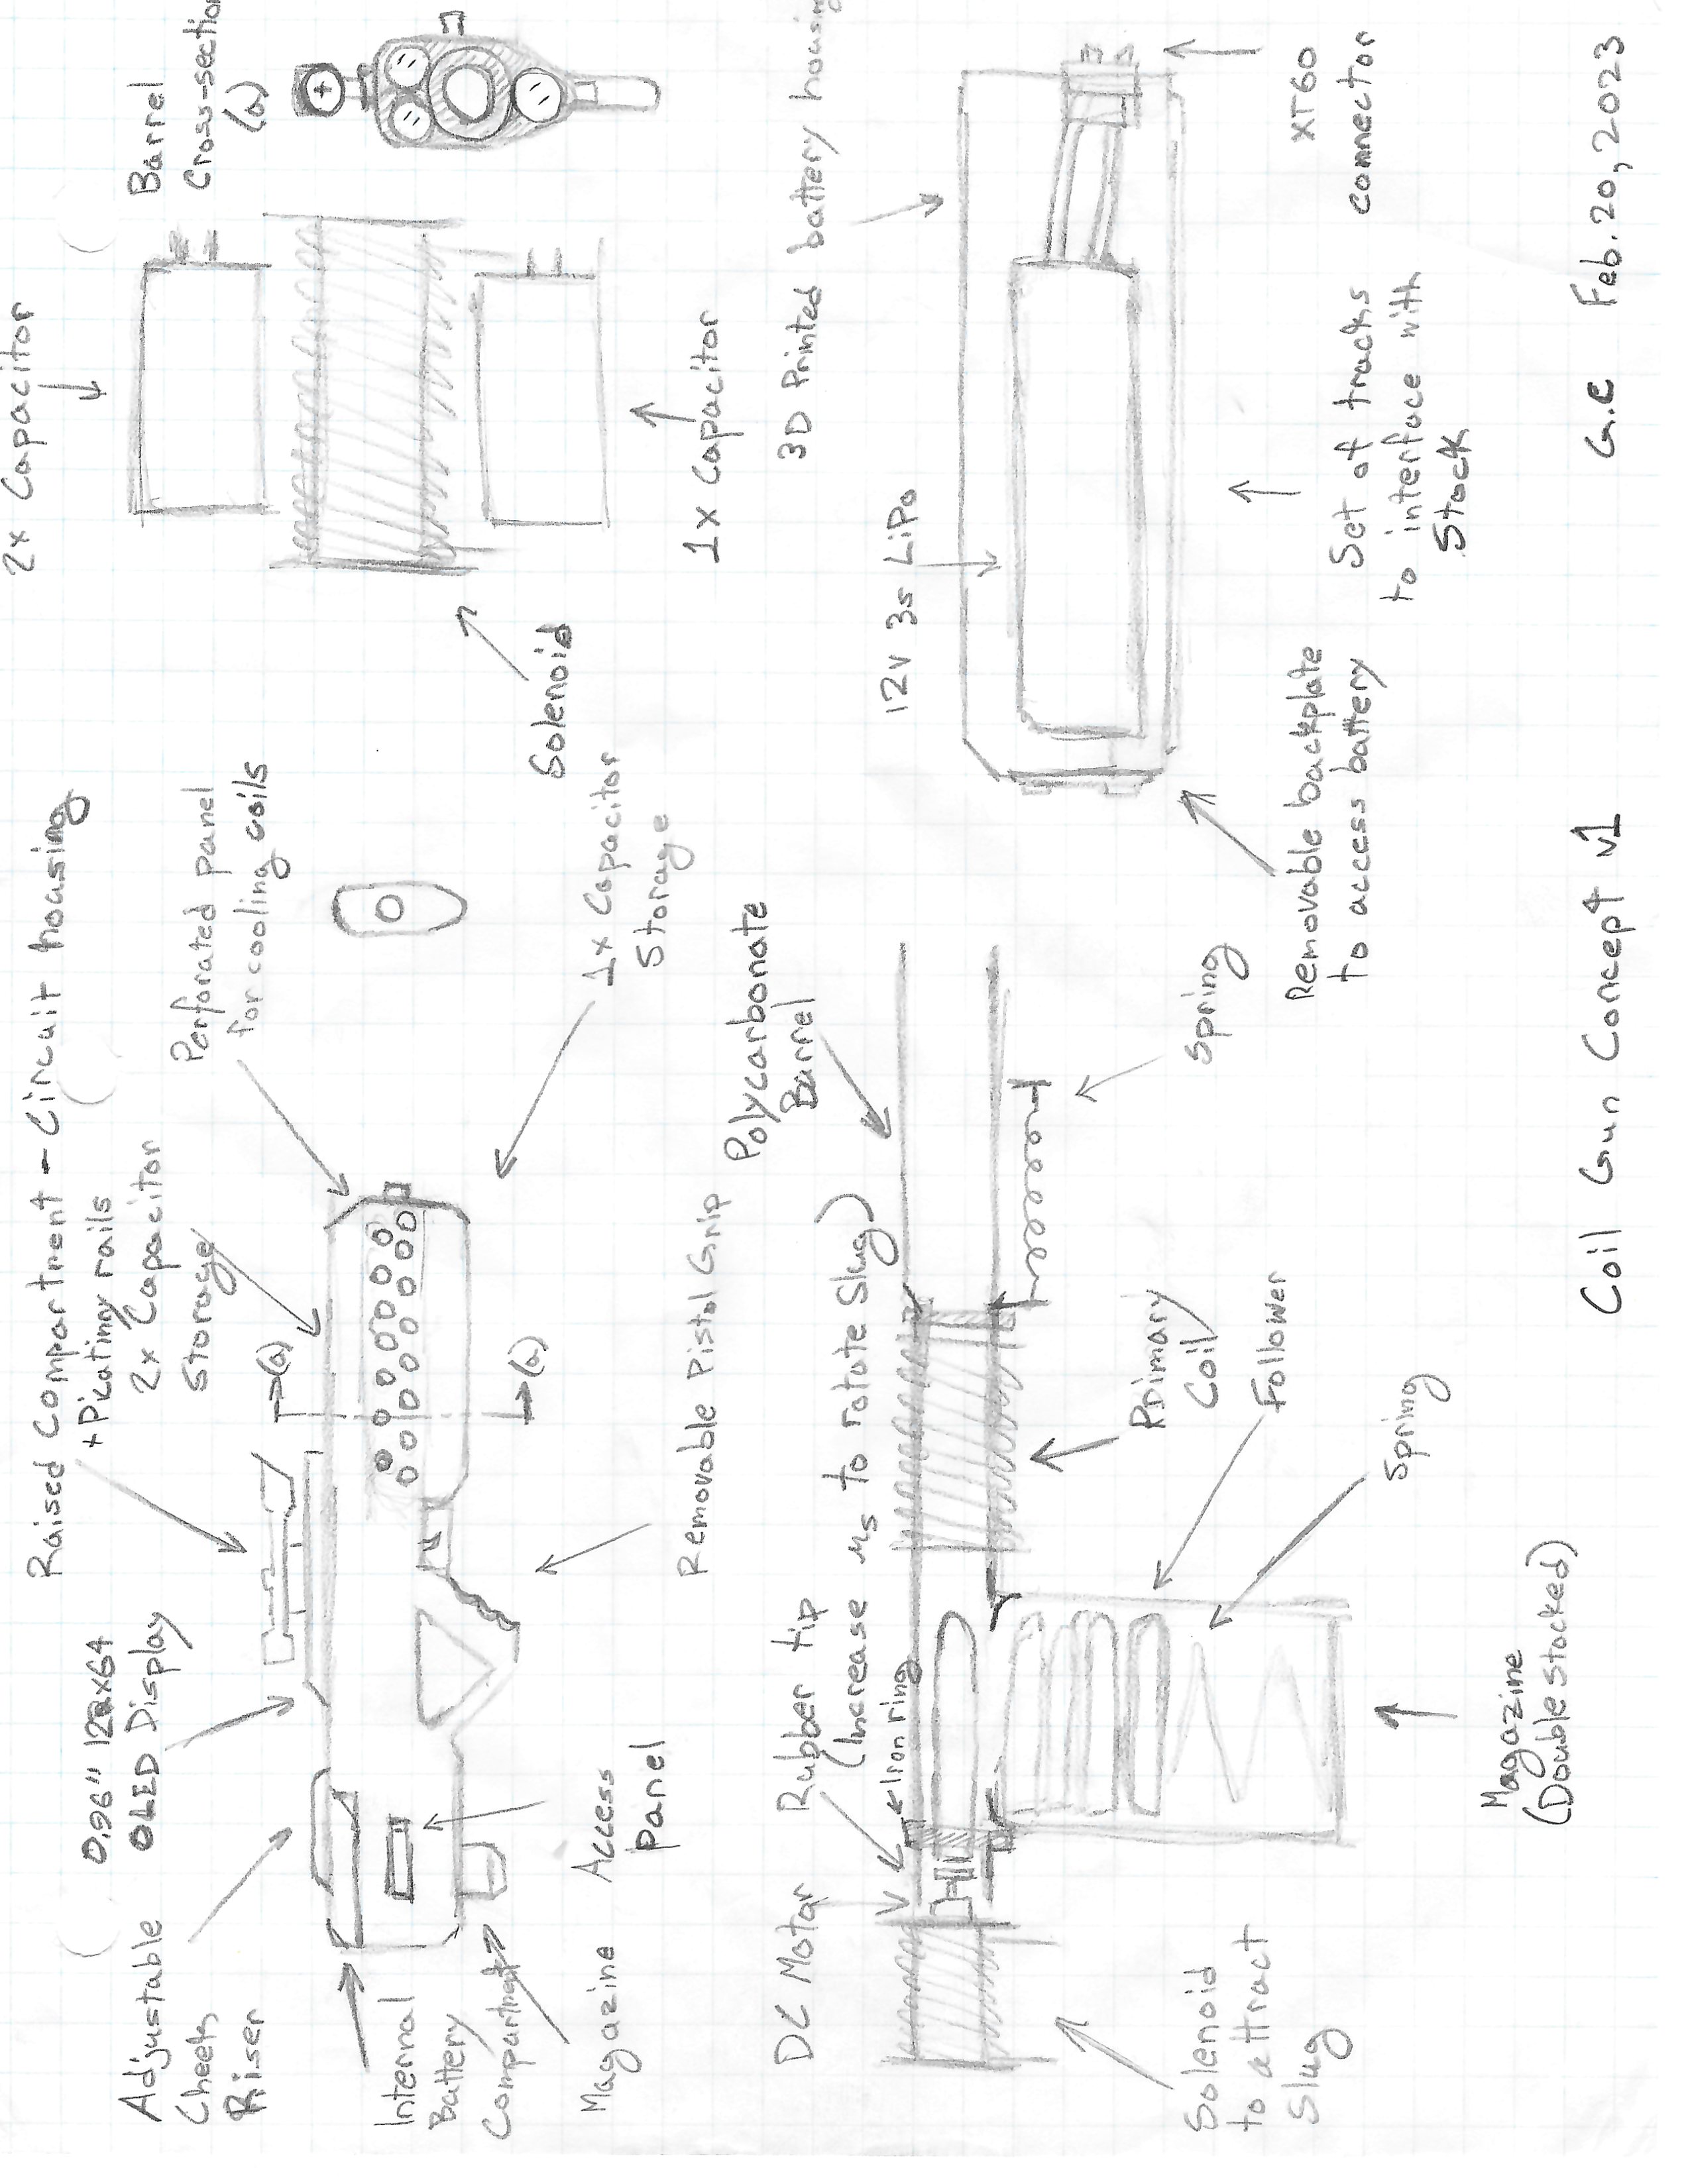 Raised Compartment - Circuit housing
+ Picatinny rails
0.96" 128x64
OLED Display
Adjustable
Cheek
Riser
2x Capacitor
Storage
Perforated panel
for cooling coils
(a)
(a)
Internal
Battery
Compartment
Magazine
Access
Panel
Removable Pistol Grip
1x Capacitor
Storage
2x Capacitor
Barrel
Cross-section
(a)
Solenoid
1x Capacitor
DC Motor
Rubber tip
(Increase μs to rotate Slug)
Iron ring
Polycarbonate
Barrel
Solenoid
to attract
Slug
Primary
Coil
Follower
Spring
Spring
Magazine
(Double stacked)
3D Printed battery housing
12v 3s LiPo
Removable backplate
to access battery
Set of tracks
to interface with
Stock
XT60
connector
Coil Gun Concept v1
G.C Feb. 20, 2023